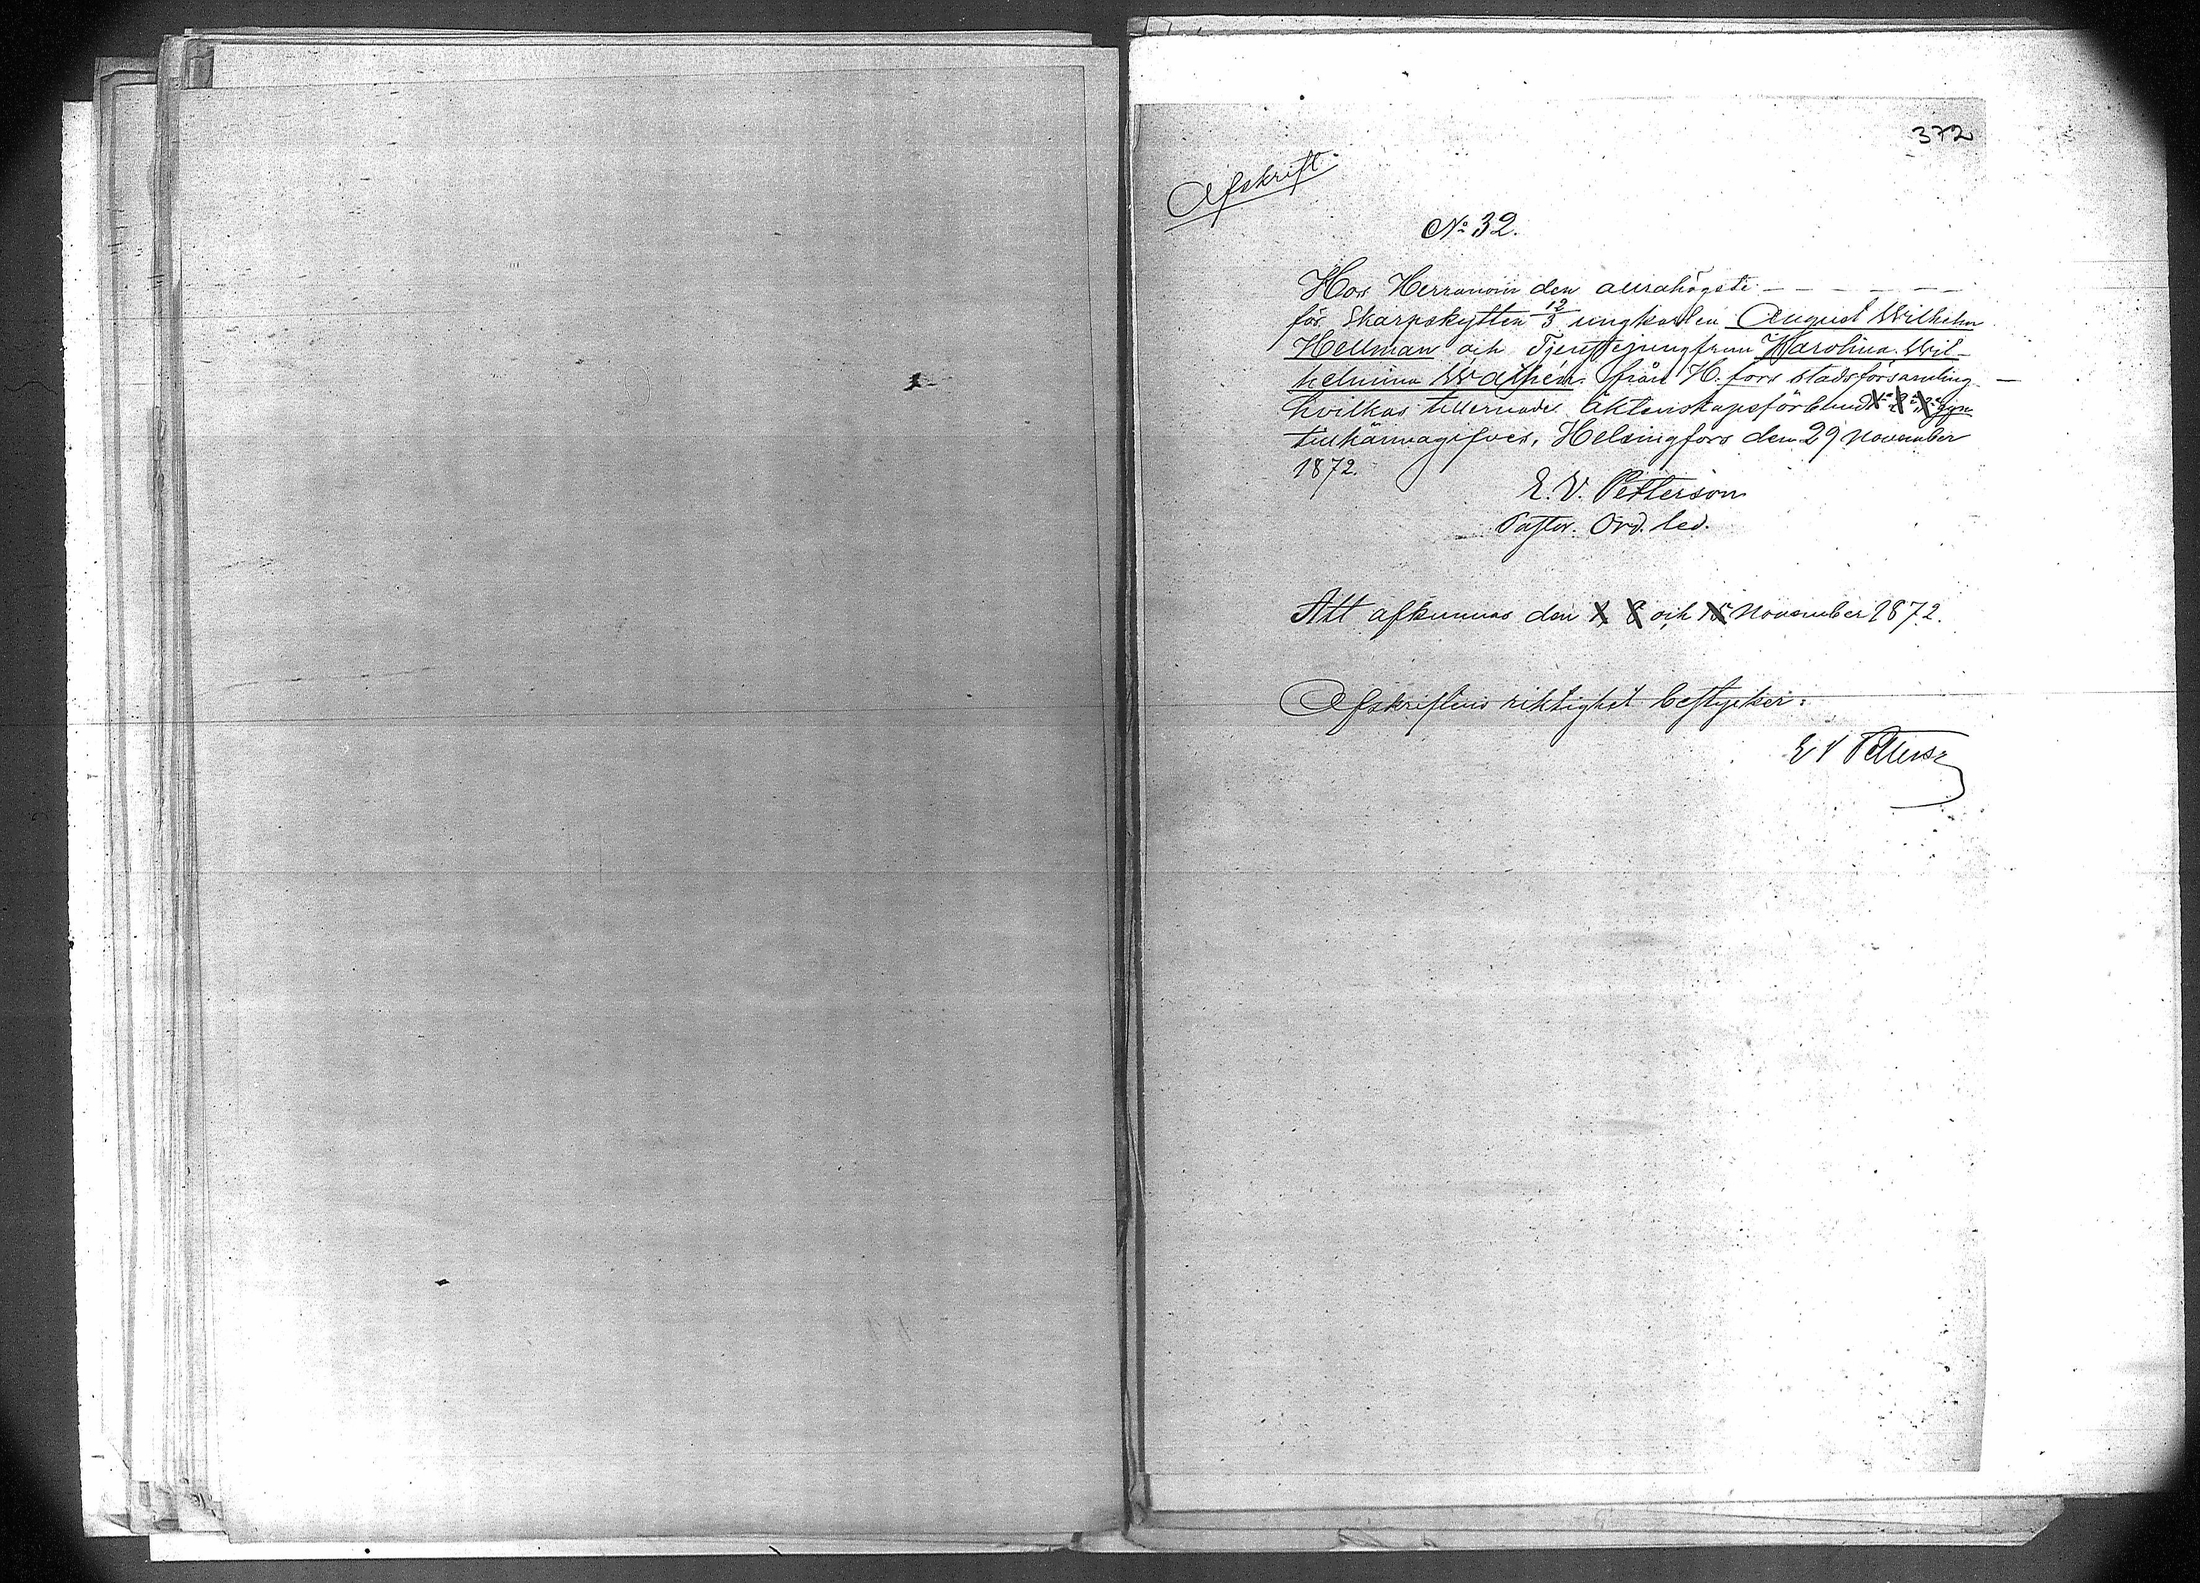 372
Afskrift.
No 32.
Hos Herranom den aurahögste
för Skarpskytten 12/3 ungkarlen August Wilhelm
Hellman och Tjenstejungfrun Karolina Wil-
helmina Walhén från H.fors stadsförsamling
hvilkas tillernade äktenskapsförbund
tillkännagifves, Helsingfors den 29 November
1872.
E. V. Petterson
Pastor. Ord. led.
Att afkunnas den 1 8 och 15 November 1872.
Afskriftens riktighet bestyrker:
E V Petterson